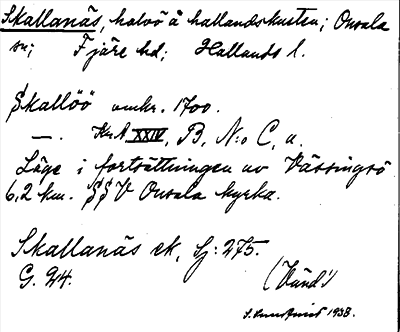 Skallanäs, halvö å hallandskusten; Onsala
sn; Fjäre hd; Hallands l.
Skallöö omkr. 1700.
—. Kr.A XXIV, B, N:o C, a.
Läge i fortsättningen av Vässingsö
6,2 km. SSV Onsala kyrka.
Skallanäs ek, bj: 275.
G. 24.
(Vänd!)
1938.